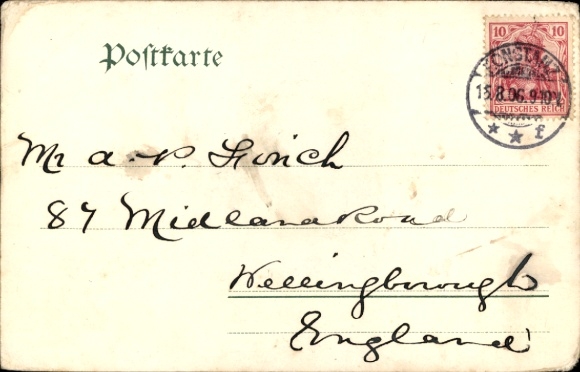 Postkarte
10 10
KONSTANZ
15.8.06.9-10V.
DEUTSCHES REICH
* * f
Mr A. P.
87 Midland Road
Wellingborough
England